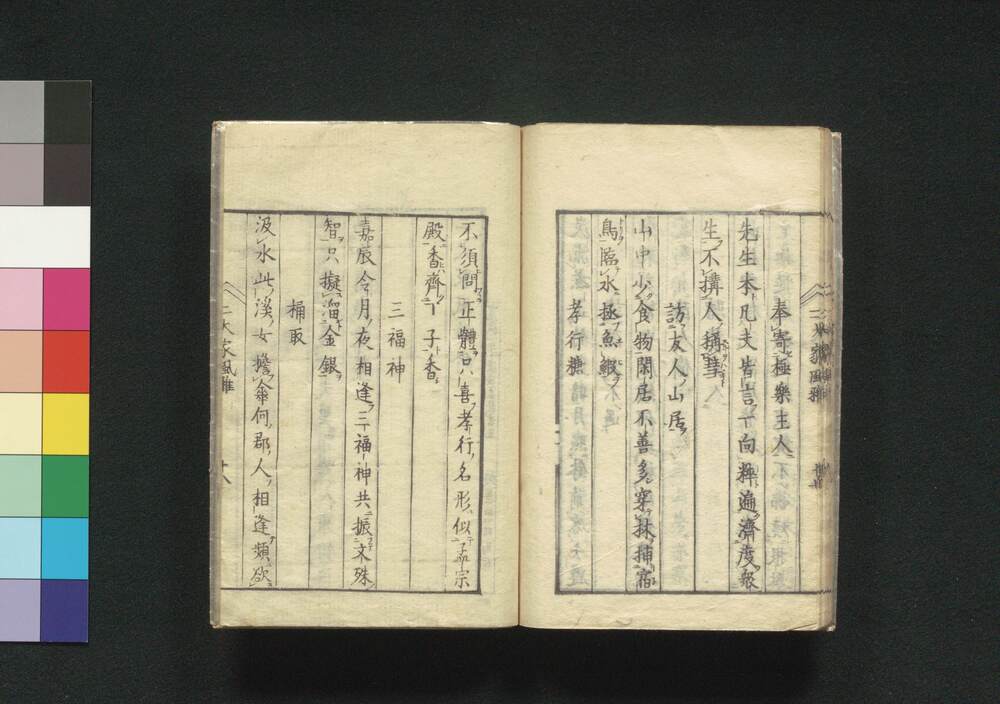 奉寄極樂主人
先生本凡夫皆言一向粋遍濟度報
生不搆人搆彗
訪友人山居
山中少食物閑居不善多穿抹捕宿
鳥臨水拯魚鰕
孝行糖
不須問正體只喜孝行名形似孟宗
殿香齊丁子香
三福神
嘉辰令月夜相逢三福神共振文殊
智只擬溜金銀
桶取
汲水此溪女擔傘何郡人相逢頻欲
二大家風雅
十八